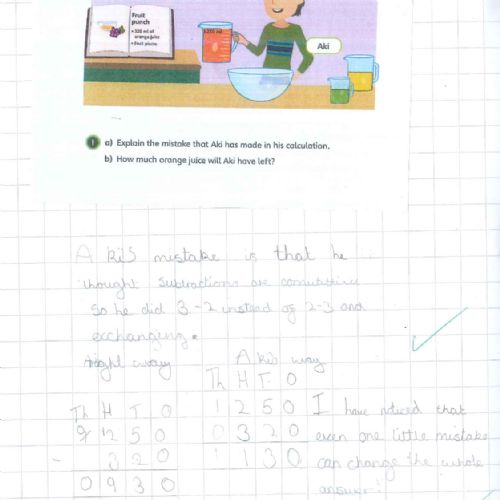 Fruit
punch
• 320 ml of
orange juice
• fruit pieces
1250 ml
Aki
1 a) Explain the mistake that Aki has made in his calculation.
b) How much orange juice will Aki have left?
Akis mistake is that he
thought Subtractions are comutitive
So he did 3-2 instead of 2-3 and
exchanging.
right way
Th H T O
12 5 0
- 3 2 0
0 9 3 0
Akis way
Th H T O
1 2 5 0
0 3 2 0
1 1 3 0
I have noticed that
even one little mistake
can change the whole
answer!